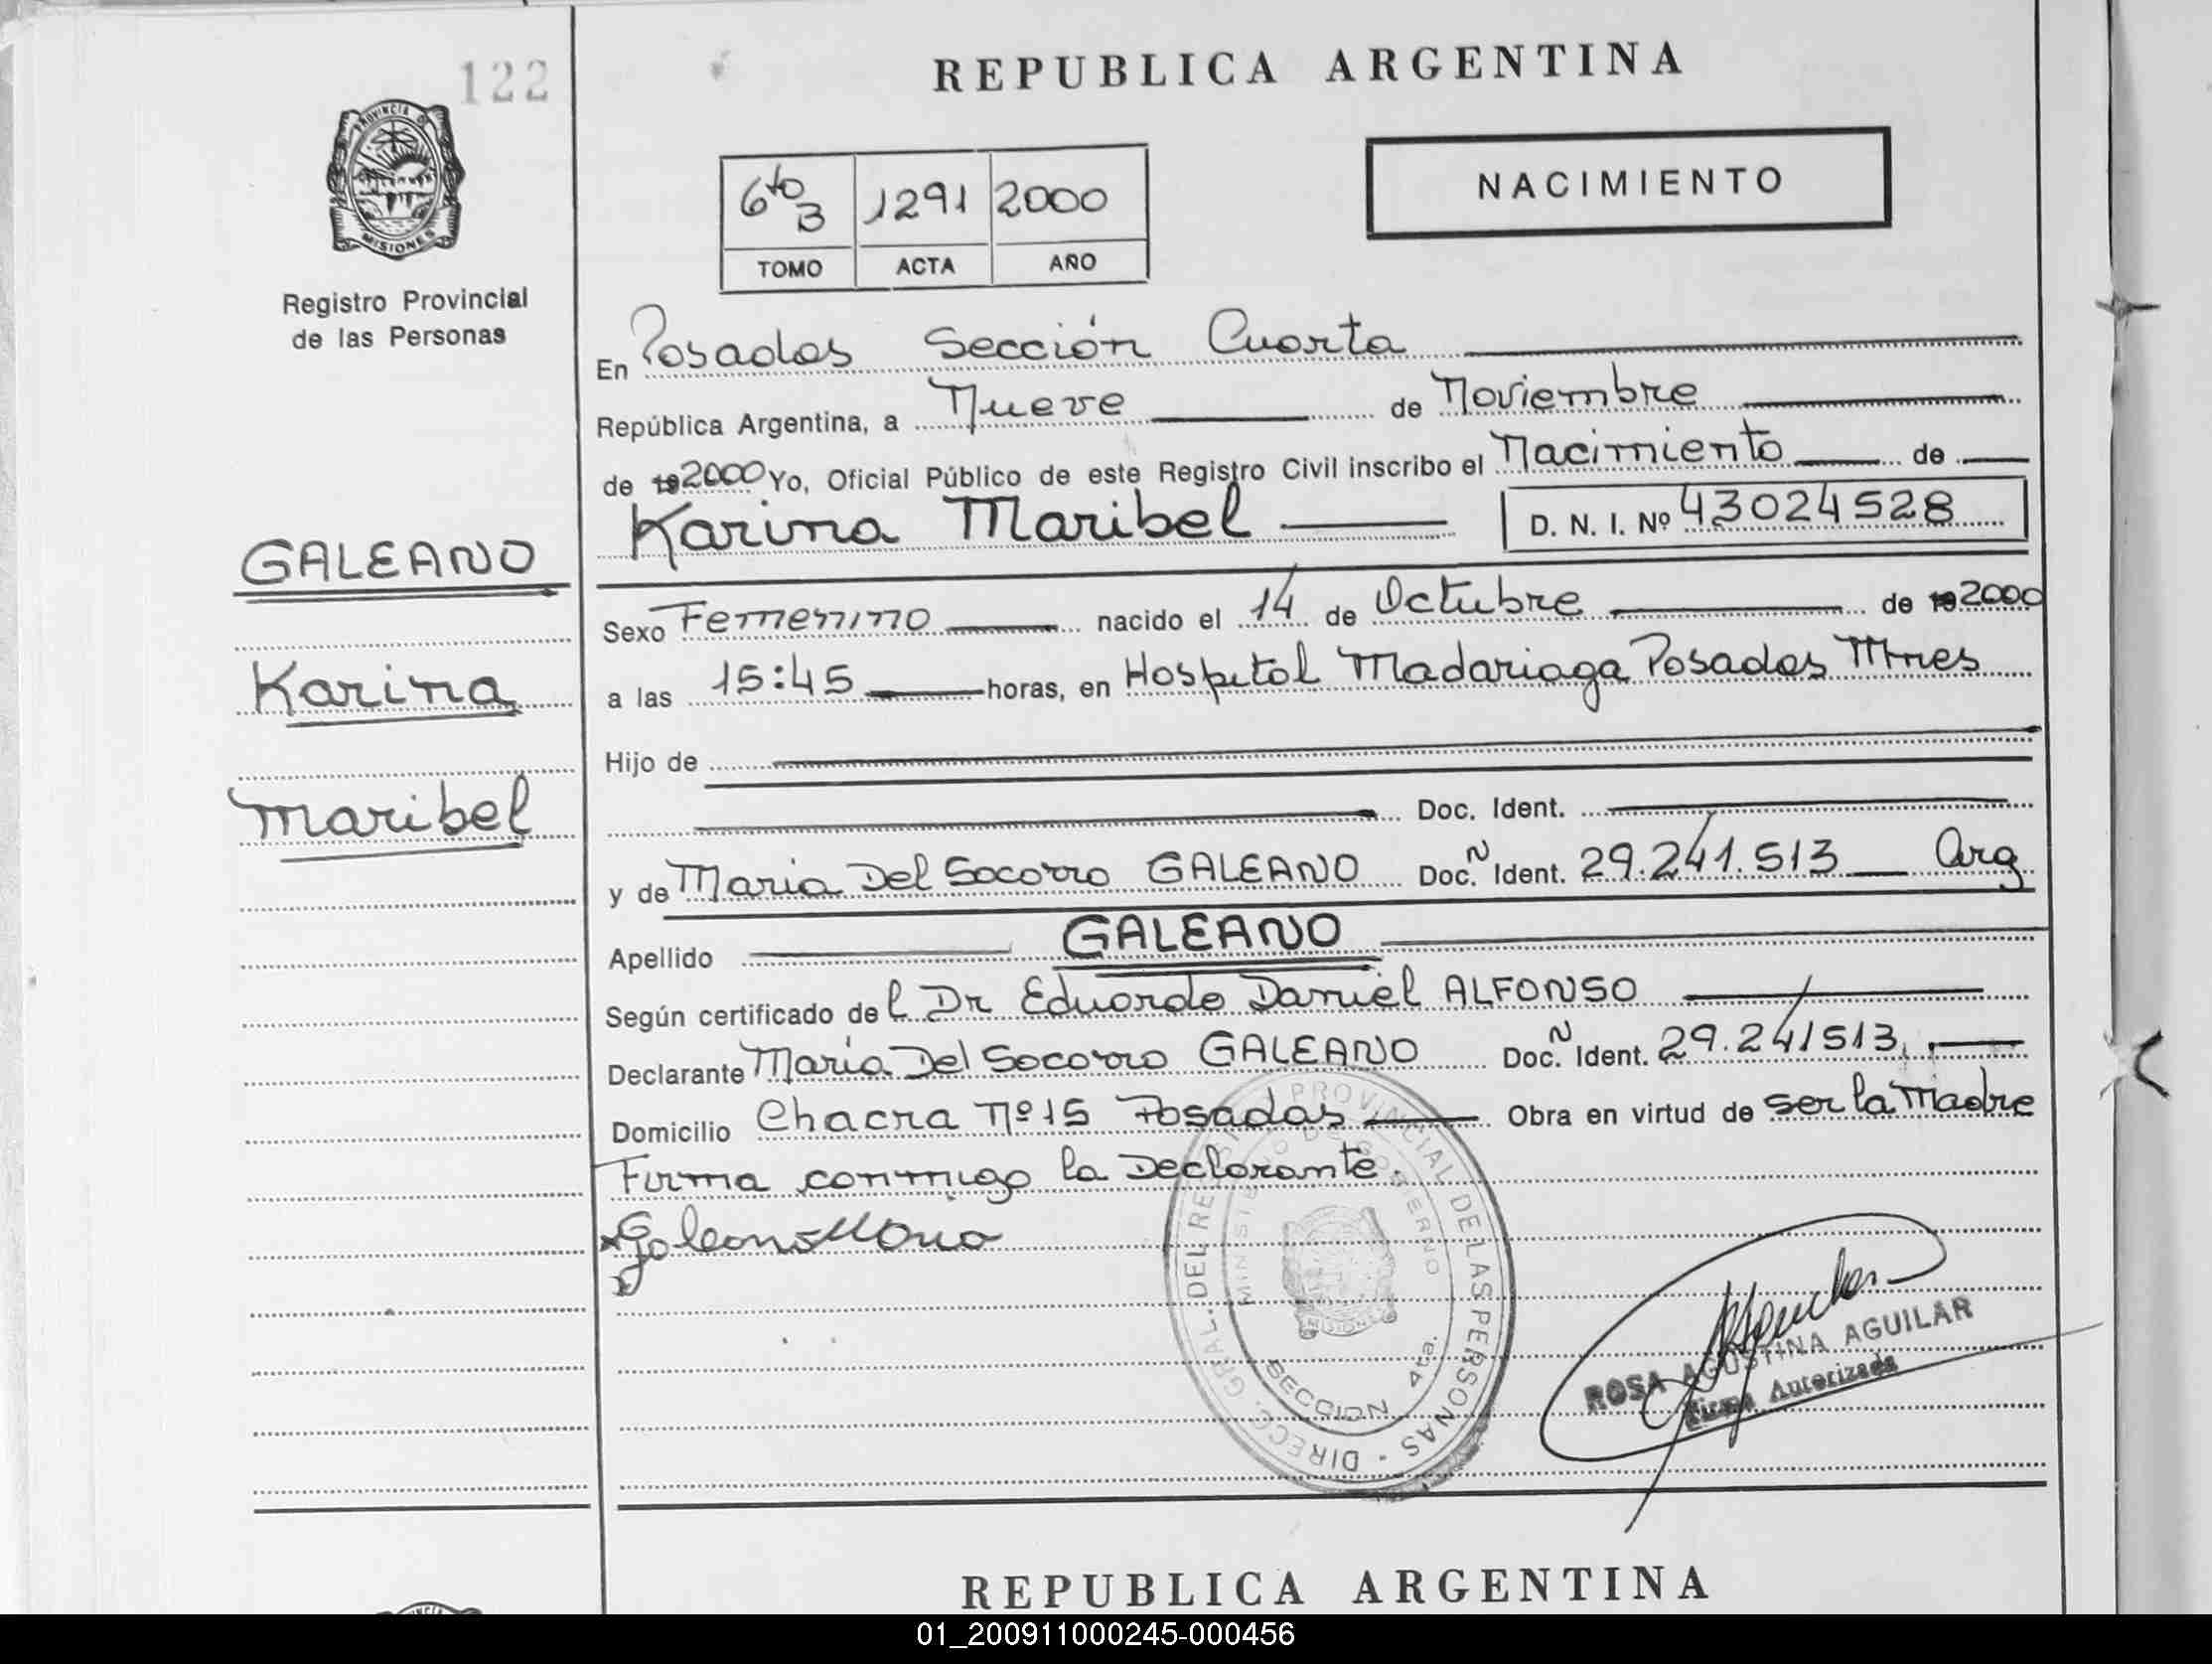 122
PROVINCIA DE
MISIONES
Registro Provincial
de las Personas
GALEANO
Karina
Maribel
REPUBLICA ARGENTINA
6to B 1291 2000
TOMO ACTA AÑO
NACIMIENTO
En Posadas Sección Cuarta
República Argentina, a Nueve de Noviembre
de 19 2000 Yo, Oficial Público de este Registro Civil inscribo el Nacimiento de
Karina Maribel D. N. I. Nº 43024528
Sexo Femenino nacido el 14 de Octubre de 19 2000
a las 15:45 horas, en Hospital Madariaga Posadas Mnes
Hijo de
Doc. Ident.
y de Maria Del Socorro GALEANO Doc. N Ident. 29.241.513 Arg
Apellido GALEANO
Según certificado del Dr Eduardo Daniel ALFONSO
Declarante Maria Del Socorro GALEANO Doc. N Ident. 29.241513
Domicilio Chacra Nº 15 Posadas Obra en virtud de ser la Madre
Firma conmigo la Declarante.
Galeano Maria
DIRECC. GRAL. DEL REGISTRO PROVINCIAL DE LAS PERSONAS -
MINISTERIO DE GOBIERNO
MISIONES
SECCION 4ta.
ROSA AGUSTINA AGUILAR
Firma Autorizada
REPUBLICA ARGENTINA
PROVINCIA
01_200911000245-000456